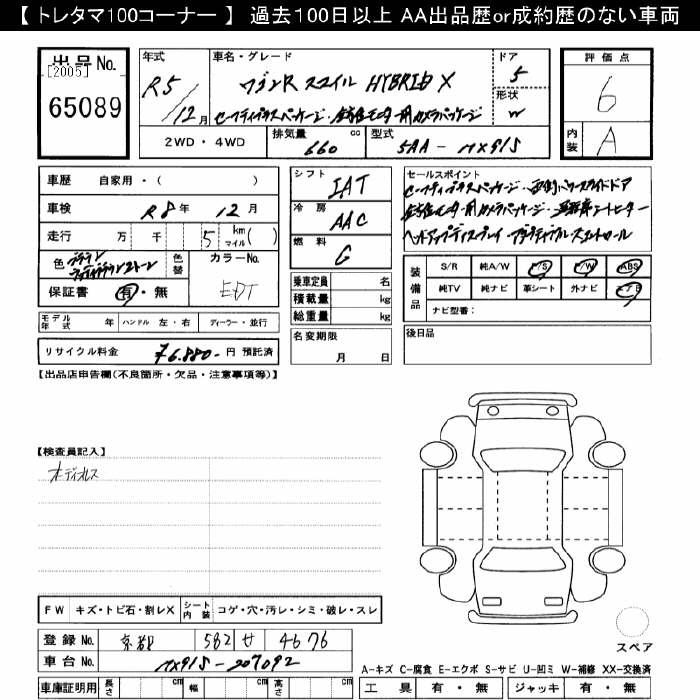 【 トレタマ100コーナー 】 過去100日以上 AA出品歴or成約歴のない車両
出品No.
[2005]
65089
年式
R5/12月
車名・グレード
ワゴンR スマイル HYBRID X
セーフティプラスパッケージ・全方位モニター用カメラパッケージ
ドア
5
形状
W
評価点
6
内装
A
2WD・4WD
排気量 660 cc
型式 5AA-MX91S
車歴 自家用・( )
車検 R8年 12月
走行 万 千 5 km マイル( )
色
色替
カラーNo.
EDT
保証書 有・無
モデル年式 年 ハンドル 左・右 ディーラー・並行
リサイクル料金 76.880- 円 預託済
シフト IAT
冷房 AAC
燃料 G
乗車定員 名
積載量 kg
総重量 kg
名変期限
月 日
セールスポイント
セーフティプラスパッケージ・両側パワースライドドア
全方位モニター用カメラパッケージ・運転席シートヒーター
ヘッドアップディスプレイ・アダプティブクルーズコントロール
装備品
S/R 純A/W P/S P/W ABS
純TV 純ナビ 革シート 外ナビ エアB
ナビ型番:
後日品
【出品店申告欄(不良箇所・欠品・注意事項等)】
【検査員記入】
オーディオレス
FW キズ・トビ石・割レX シート内装 コゲ・穴・汚レ・シミ・破レ・スレ
登録No. 京都 582 せ 4676
車台No. MX91S-207092
車庫証明用 長さ cm 幅 cm 高さ cm
スペア
A-キズ C-腐食 E-エクボ S-サビ U-凹ミ W-補修 XX-交換済
工具 有・無 ジャッキ 有・無